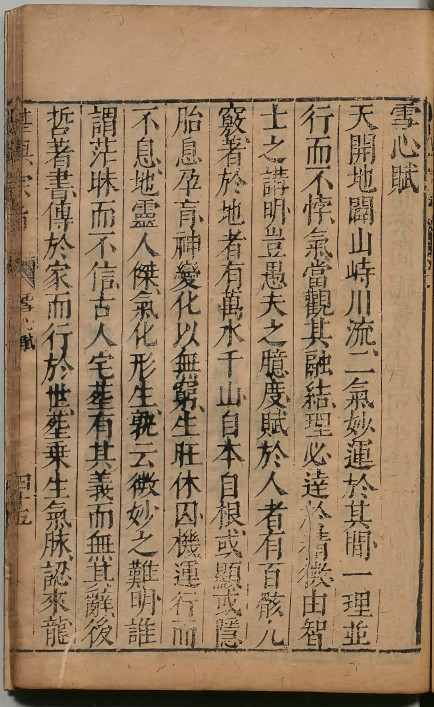 雪心賦
天開地闢山峙川流二氣妙運於其間一理並
行而不悖氣當觀其融結理必達於精微由智
士之講明豈愚夫之臆度賦於人者有百骸九
竅著於地者有萬水千山自本自根或顯或隱
胎息孕育神變化以無窮生旺休囚機運行而
不息地靈人傑氣化形生孰云微妙之難明誰
謂茫昧而不信古人宅葬有其義而無其辭後
哲著書傳於家而行於世葬乗生氣脉認來龍
雪心賦
四十五